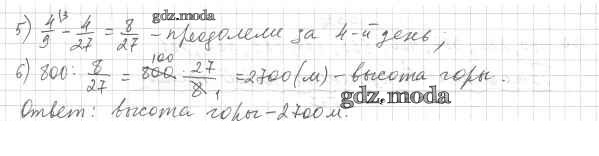 5) 4/9 \3 - 4/27 = 8/27 - преодолели за 4-й день;
gdz.moda
6) 800 : 8/27 = 800 100 · 27/8 1 = 2700 (м) - высота горы.
gdz.moda
Ответ: высота горы - 2700 м.